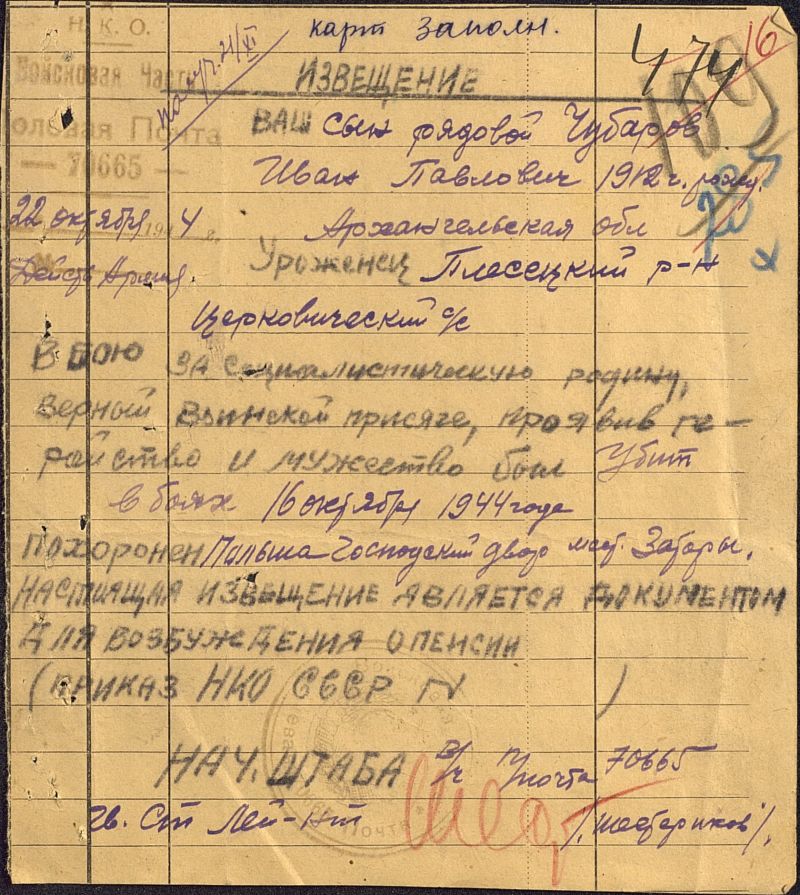 Н. К. О.
карт заполн.
474
16
Войсковая Часть
ИЗВЕЩЕНИЕ
Полевая Почта
— 70665 —
ВАШ сын рядовой Чубаров
Иван Павлович 1912 г. рожд.
22 октября 1944 г.
Архангельская обл
Действ Армия.
Уроженец Плесецкий р-н
Церковический с/с
В БОЮ за социалистическую родину,
верный воинской присяге, проявив ге-
ройство и мужество был Убит
в боях 16 октября 1944 года
ПОХОРОНЕН Польша Господский двор мест. Заторы.
НАСТОЯЩАЯ ИЗВЕЩЕНИЕ ЯВЛЯЕТСЯ ДОКУМЕНТОМ
ДЛЯ ВОЗБУЖДЕНИЯ О ПЕНСИИ
(ПРИКАЗ НКО СССР №        )
НАЧ. ШТАБА в/ч п/почта 70665
Гв. Ст Лей-нт /Шестериков/.